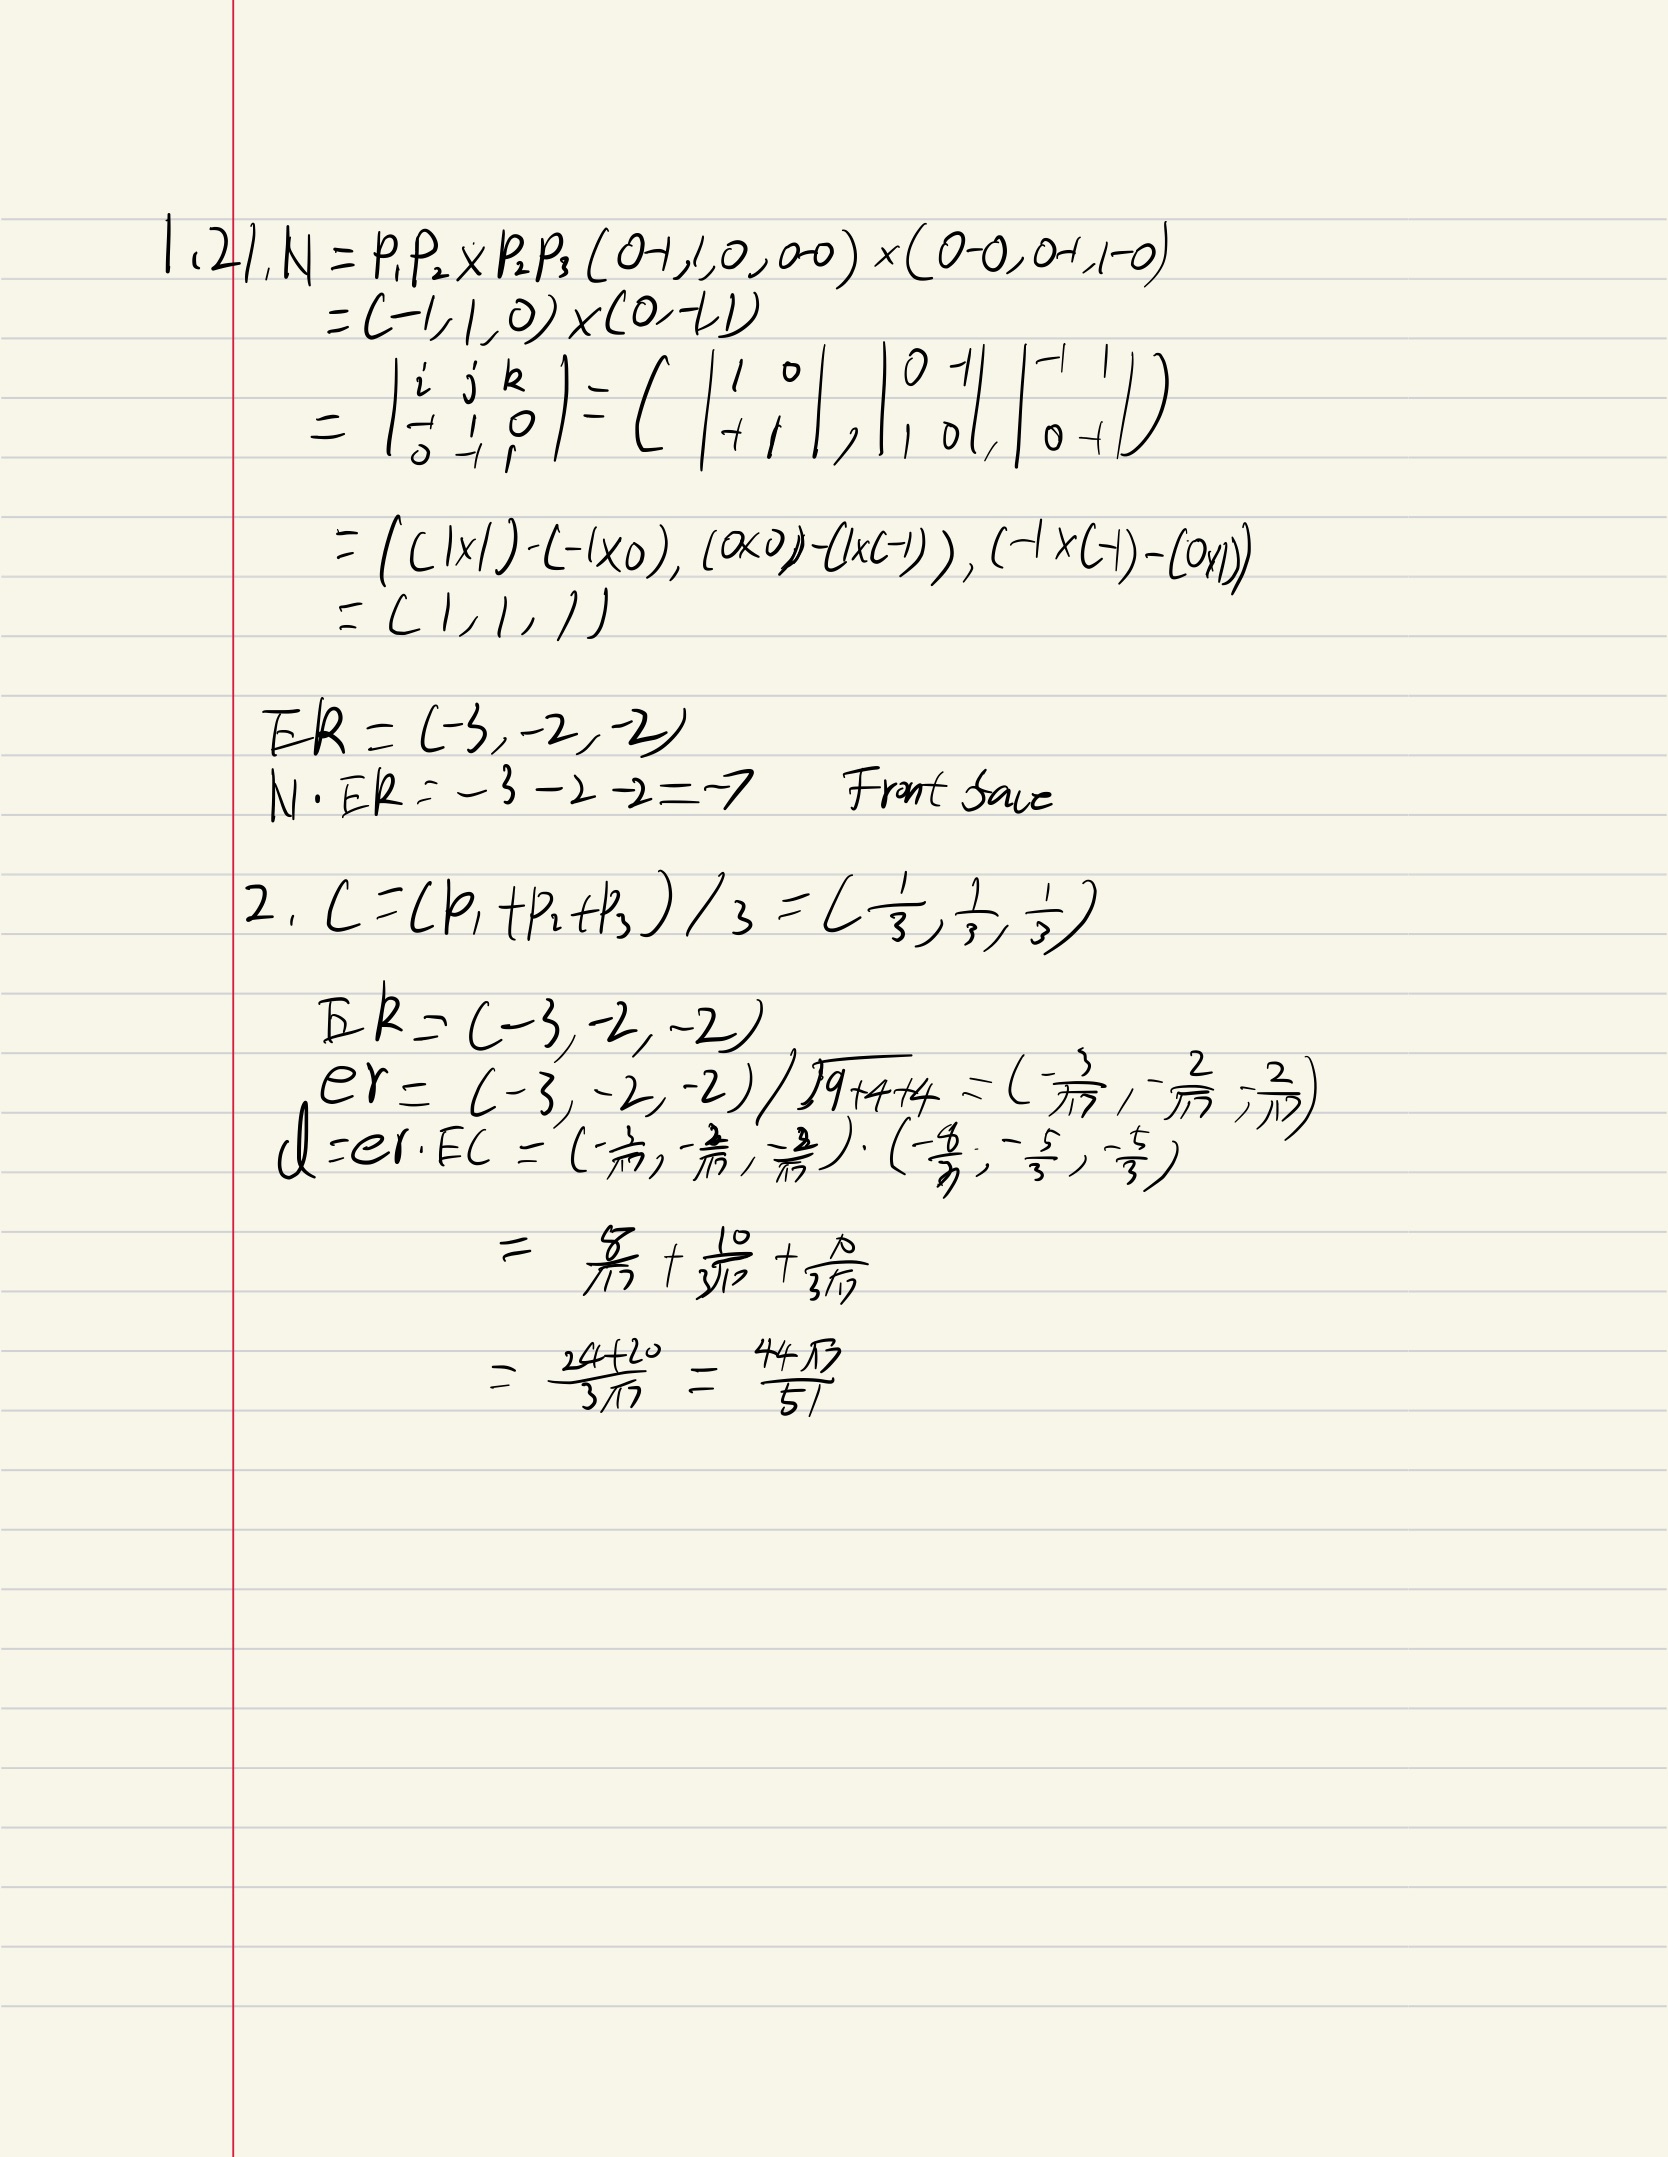 1.2).N = P₁P₂ × P₂P₃ (0-1, 1, 0, 0-0) × (0-0, 0-1, 1-0)
= (-1, 1, 0) × (0, -1, 1)
= | i j k ; -1 1 0 ; 0 -1 1 | = ( | 1 0 ; -1 1 | , | 0 -1 ; 1 0 | , | -1 1 ; 0 -1 | )
= ((1×1) - (-1×0), (0×0) - (1×(-1)), (-1×(-1) - (0×1))
= (1, 1, 1)
ER = (-3, -2, -2)
N · ER = -3 - 2 - 2 = -7 Front face
2. C = (P₁ + P₂ + P₃) / 3 = (1/3, 1/3, 1/3)
ER = (-3, -2, -2)
er = (-3, -2, -2) / √9+4+4 = (-3/√17, -2/√17, -2/√17)
d = er · EC = (-3/√17, -2/√17, -2/√17) · (-8/3, -5/3, -5/3)
= 8/√17 + 10/3√17 + 10/3√17
= 24+20/3√17 = 44√17/51